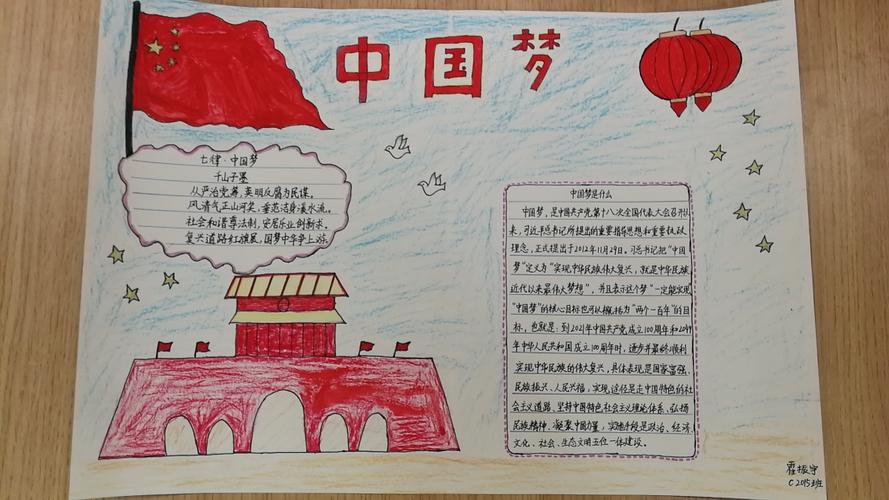 中国梦
七律·中国梦
千山子墨
从严治党筹，英明反腐为民谋。
风清气正山河笑，垂范洁身溪水流。
社会和谐尊法制，安居乐业创新求。
复兴道路红旗展，国梦中华争上游
中国梦是什么
中国梦，是中国共产党第十八次全国代表大会召开以
来，习近平总书记所提出的重要指导思想和重要执政
理念，正式提出于2012年11月29日。习总书记把"中国
梦"定义为"实现中华民族伟大复兴，就是中华民族
近代以来最伟大梦想"，并且表示这个梦"一定能实现"
"中国梦"的核心目标也可以概括为"两个一百年"的目
标，也就是：到2021年中国共产党成立100周年和2049
年中华人民共和国成立100周年时，逐步并最终顺利
实现中华民族的伟大复兴，具体表现是国家富强、
民族振兴、人民兴福，实现途径是走中国特色的社
会主义道路、坚持中国特色社会主义理论体系、弘扬
民族精神、凝聚中国力量，实施手段是政治、经济、
文化、社会、生态文明五位一体建设。
霍振宇
C2015班